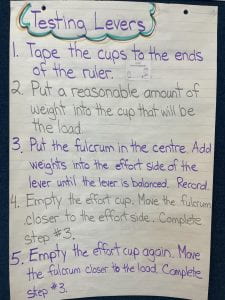 Testing Levers
1. Tape the cups to the ends
of the ruler.
2. Put a reasonable amount of
weight into the cup that will be
the load.
3. Put the fulcrum in the centre. Add
weights into the effort side of the
lever until the lever is balanced. Record.
4. Empty the effort cup. Move the fulcrum
closer to the effort side. Complete
step #3.
5. Empty the effort cup again. Move
the fulcrum closer to the load. Complete
step #3.